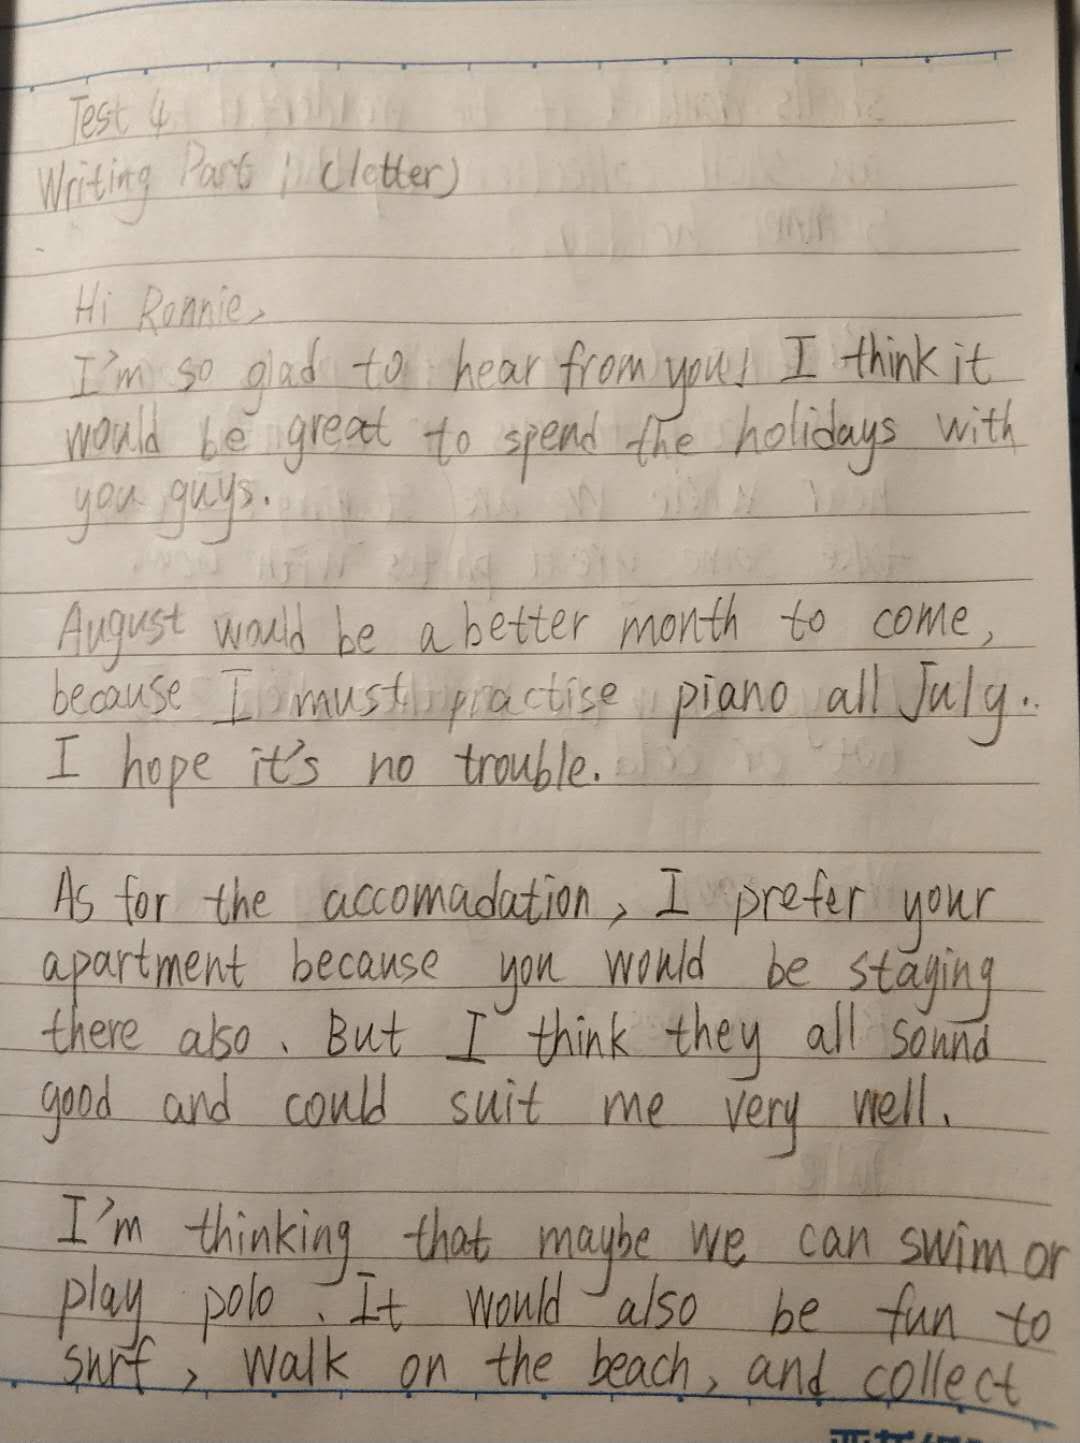 Test 4
Writing Part 1 (letter)
Hi Ronnie,
I'm so glad to hear from you! I think it
would be great to spend the holidays with
you guys.
August would be a better month to come,
because I must practise piano all July..
I hope it's no trouble.
As for the accomadation, I prefer your
apartment because you would be staying
there also. But I think they all sound
good and could suit me very well.
I'm thinking that maybe we can swim or
play polo. It would also be fun to
surf, walk on the beach, and collect